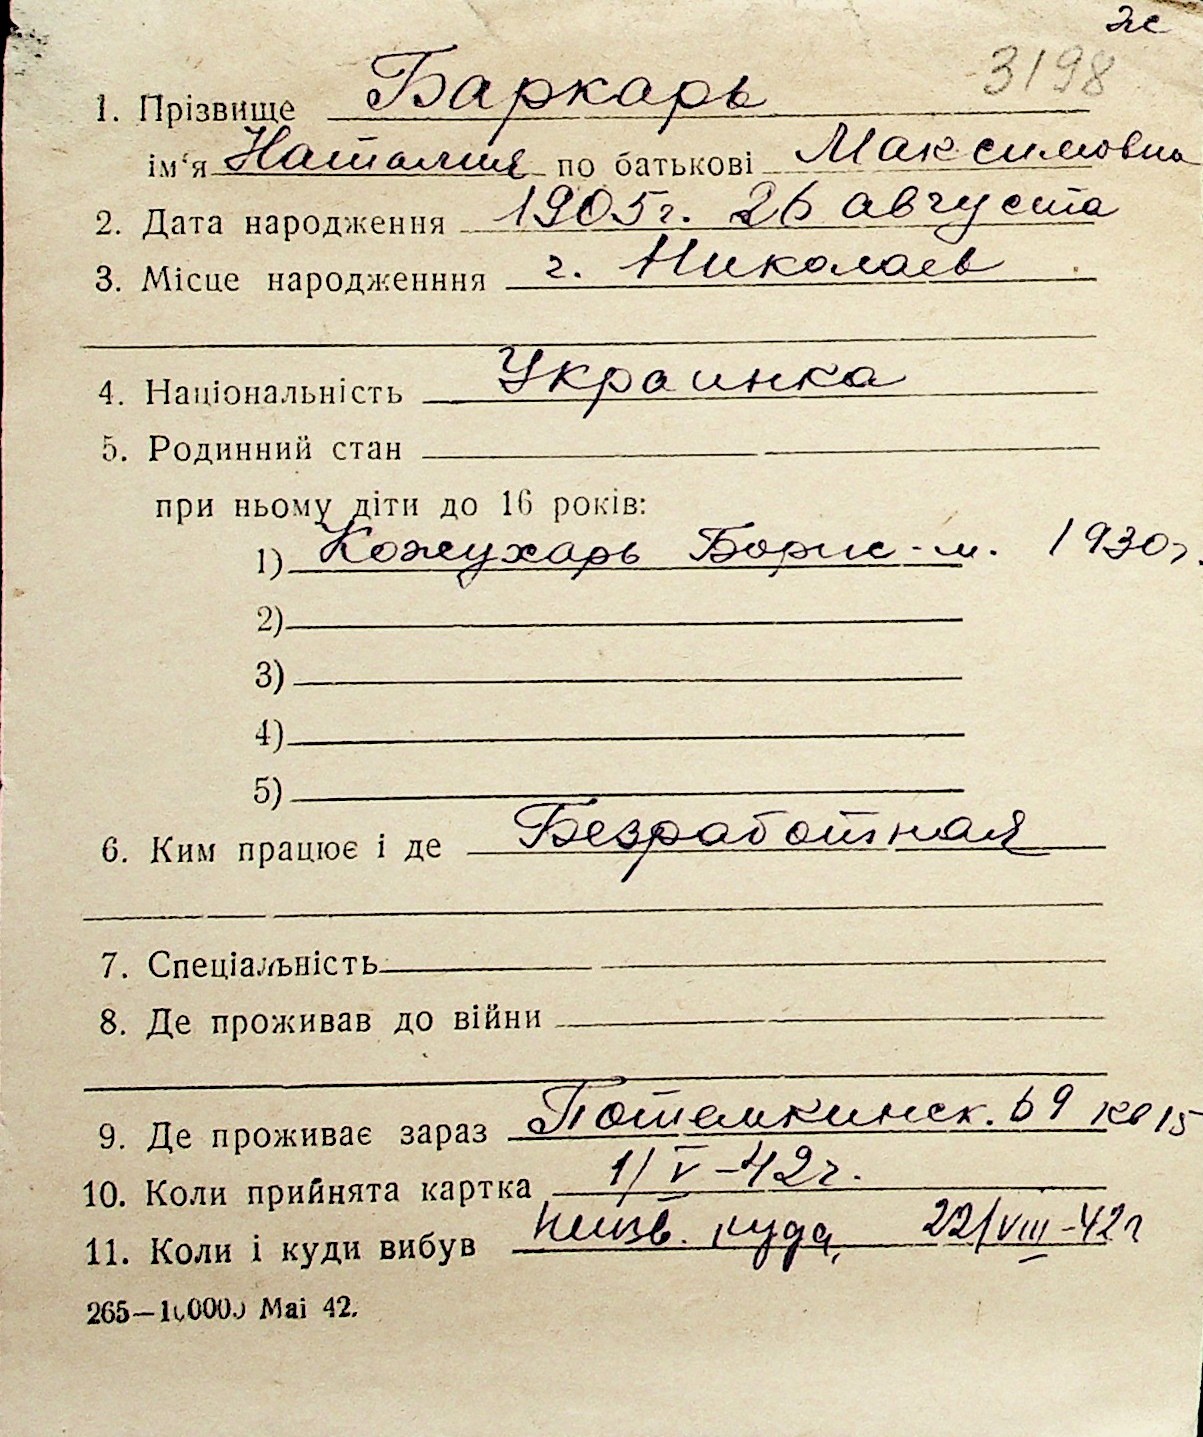 ж
3198
1. Прізвище Баркарь
ім‘я Наталия по батькові Максимовна
2. Дата народження 1905г. 26 августа
3. Місце народженння г. Николаев
4. Національність Украинка
5. Родинний стан
при ньому діти до 16 років:
1) Кожухарь Борис - м. 1930г.
2)
3)
4)
5)
6. Ким працює і де Безработная
7. Спеціальність
8. Де проживав до війни
9. Де проживає зараз Потемкинск. 69 кв 15
10. Коли прийнята картка 1/V-42г.
11. Коли і куди вибув неизв. куда, 22/VIII-42г
265—10000) Mai 42.